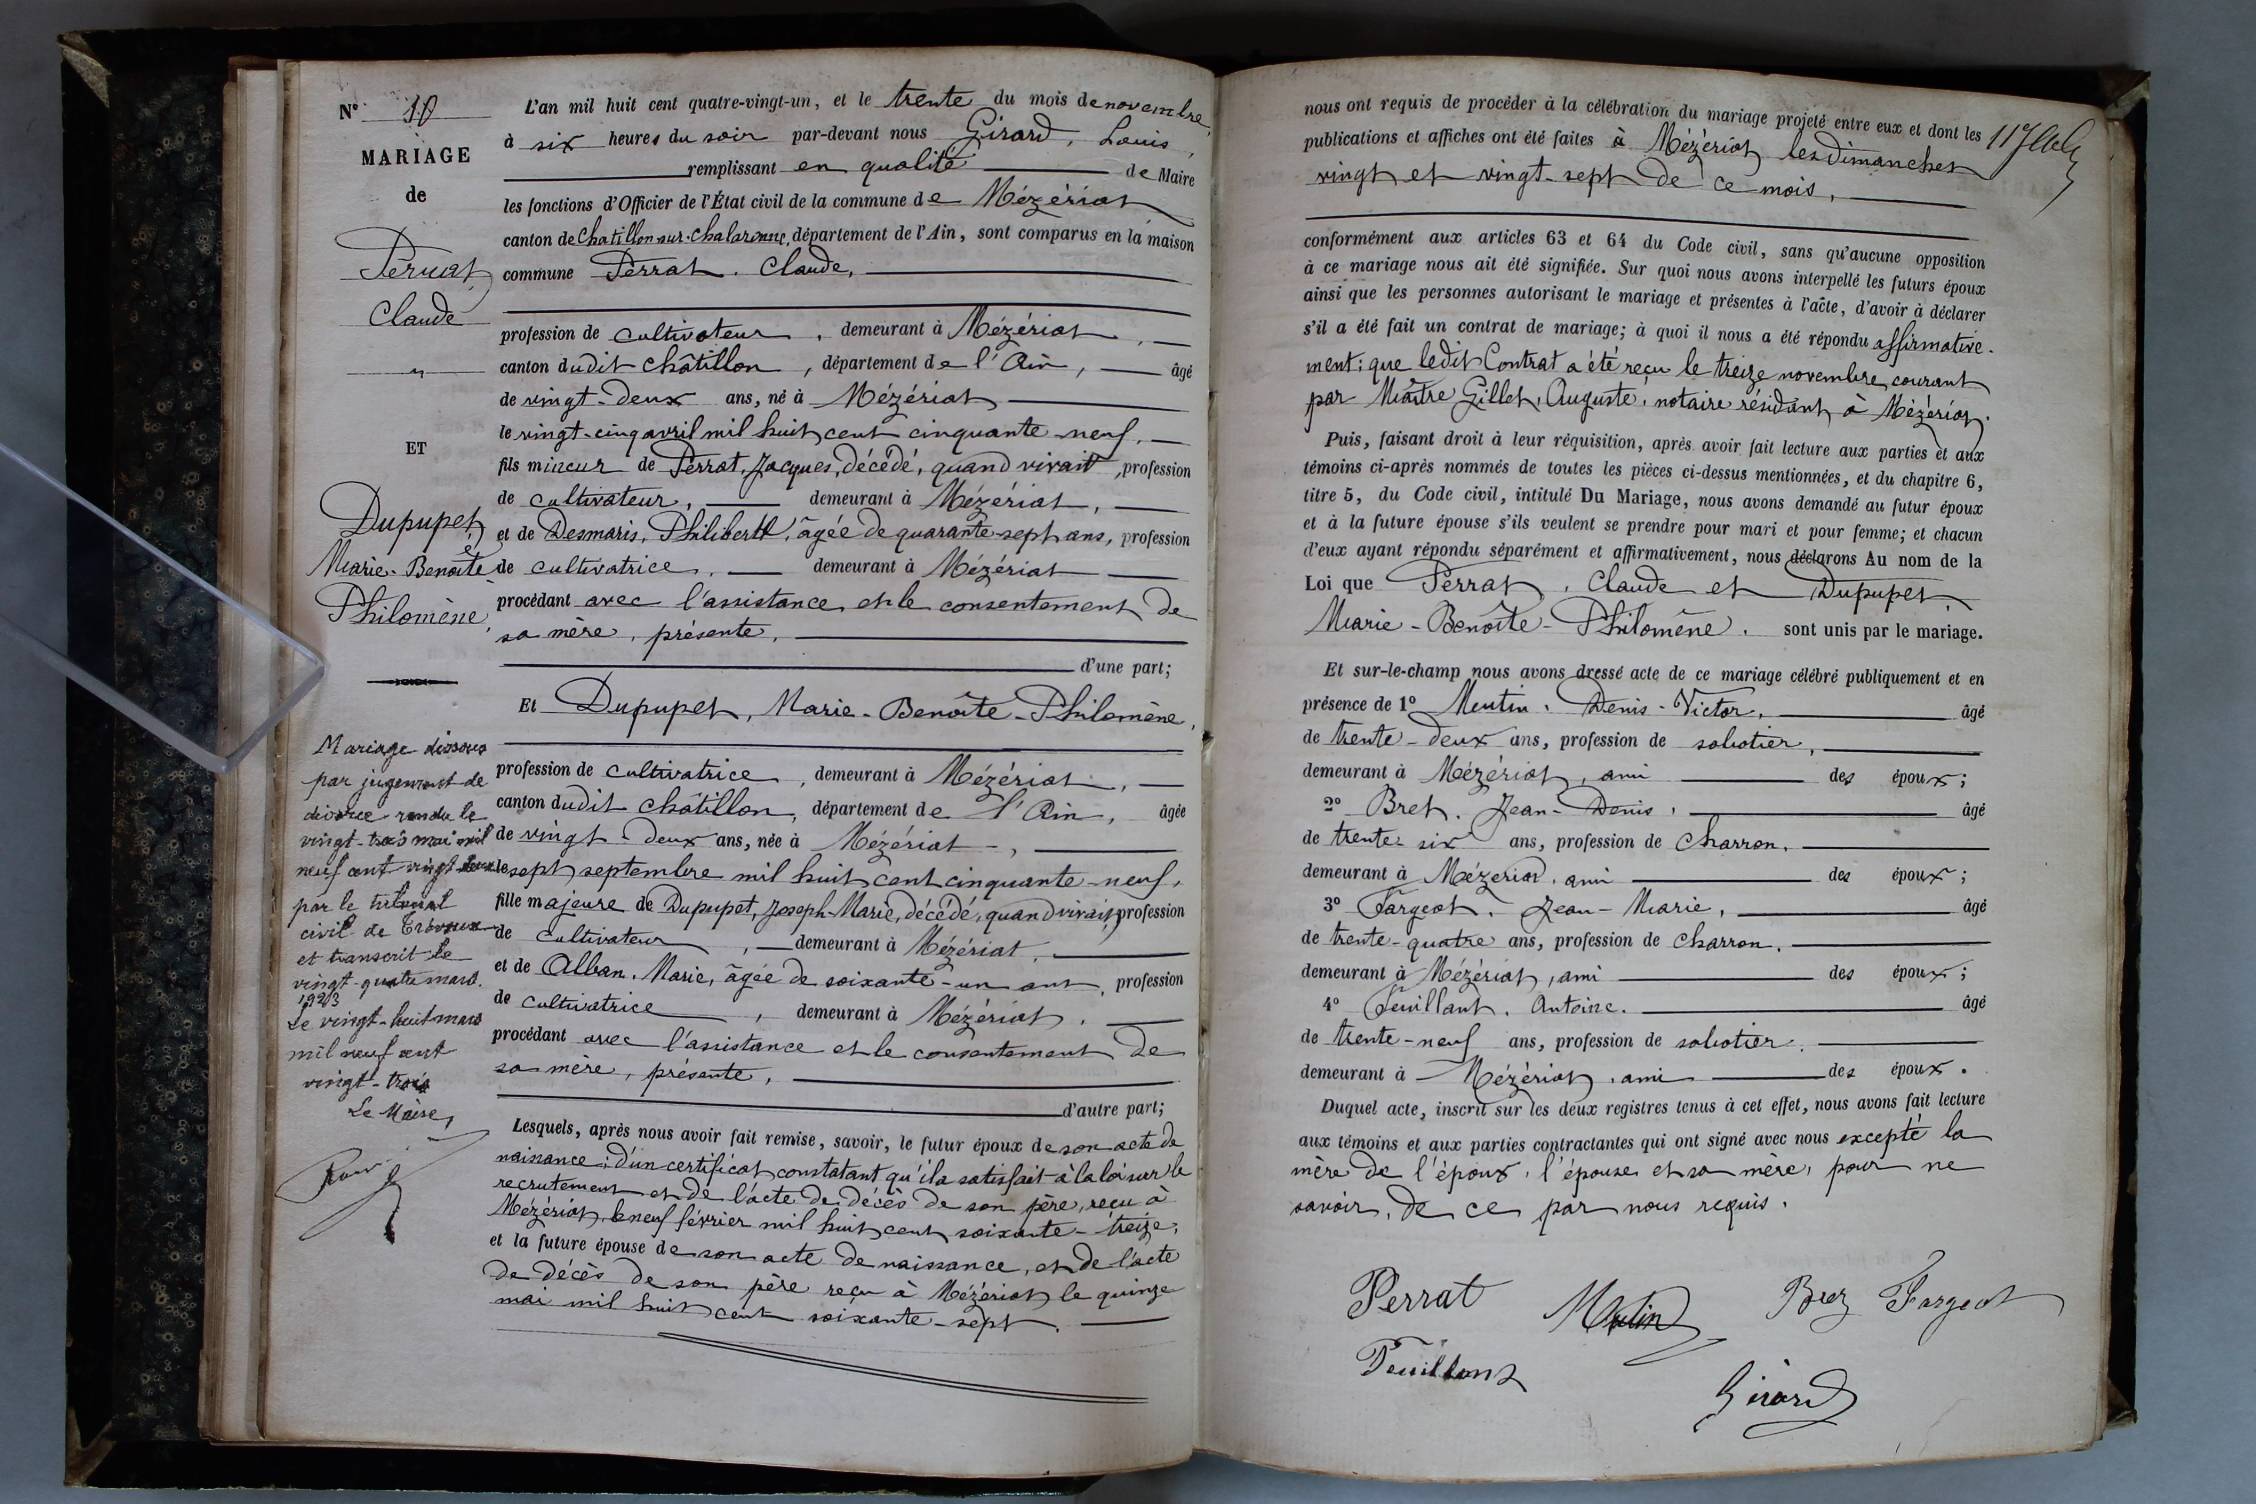 N° 10
MARIAGE
de
Perrat,
Claude
ET
Dupupet,
Marie-Benoîte
Philomène,
Mariage dissous
par jugement de
divorce rendu le
vingt-trois mai mil
neuf cent vingt deux
par le tribunal
civil de Trévoux
et transcrit le
vingt-quatre mars
1923
Le vingt-huit mars
mil neuf cent
vingt-trois
Le Maire,
L'an mil huit cent quatre-vingt-un, et le trente du mois de novembre,
à six heures du soir par-devant nous Girard, Louis,
remplissant en qualité de Maire
les fonctions d'Officier de l'État civil de la commune de Mézériat
canton de Chatillon-sur-Chalaronne, département de l'Ain, sont comparus en la maison
commune Perrat, Claude,
profession de cultivateur, demeurant à Mézériat,
canton dudit Châtillon, département de l'Ain, âgé
de vingt-deux ans, né à Mézériat
le vingt-cinq avril mil huit cent cinquante-neuf,
fils mineur de Perrat, Jacques, décédé, quand vivait, profession
de cultivateur, demeurant à Mézériat,
et de Desmaris, Philiberte, âgée de quarante-sept ans, profession
de cultivatrice, demeurant à Mézériat
procédant avec l'assistance et le consentement de
sa mère, présente,
d'une part;
Et Dupupet, Marie-Benoîte-Philomène,
profession de cultivatrice, demeurant à Mézériat,
canton dudit Châtillon, département de l'Ain, âgée
de vingt-deux ans, née à Mézériat,
le sept septembre mil huit cent cinquante-neuf,
fille majeure de Dupupet, Joseph-Marie, décédé, quand vivait, profession
de cultivateur, demeurant à Mézériat,
et de Alban, Marie, âgée de soixante-un ans, profession
de cultivatrice, demeurant à Mézériat,
procédant avec l'assistance et le consentement de
sa mère, présente,
d'autre part;
Lesquels, après nous avoir fait remise, savoir, le futur époux de son acte de
naissance; d'un certificat constatant qu'il a satisfait à la loi sur le
recrutement et de l'acte de décès de son père, reçu à
Mézériat, le neuf février mil huit cent soixante-treize;
et la future épouse de son acte de naissance, et de l'acte
de décès de son père reçu à Mézériat le quinze
mai mil huit cent soixante-sept.
nous ont requis de procéder à la célébration du mariage projeté entre eux et dont les
publications et affiches ont été faites à Mézériat les dimanches
vingt et vingt-sept de ce mois,
conformément aux articles 63 et 64 du Code civil, sans qu'aucune opposition
à ce mariage nous ait été signifiée. Sur quoi nous avons interpellé les futurs époux
ainsi que les personnes autorisant le mariage et présentes à l'acte, d'avoir à déclarer
s'il a été fait un contrat de mariage; à quoi il nous a été répondu affirmative-
ment; que ledit Contrat a été reçu le treize novembre courant
par Maître Gillet, Auguste, notaire résidant à Mézériat.
Puis, faisant droit à leur réquisition, après avoir fait lecture aux parties et aux
témoins ci-après nommés de toutes les pièces ci-dessus mentionnées, et du chapitre 6,
titre 5, du Code civil, intitulé Du Mariage, nous avons demandé au futur époux
et à la future épouse s'ils veulent se prendre pour mari et pour femme; et chacun
d'eux ayant répondu séparément et affirmativement, nous déclarons Au nom de la
Loi que Perrat, Claude et Dupupet,
Marie-Benoîte-Philomène. sont unis par le mariage.
Et sur-le-champ nous avons dressé acte de ce mariage célébré publiquement et en
présence de 1° Mutin, Denis-Victor, âgé
de trente-deux ans, profession de sabotier,
demeurant à Mézériat, ami des époux;
2° Bret, Jean-Denis, âgé
de trente-six ans, profession de charron,
demeurant à Mézériat, ami des époux;
3° Fargeot, Jean-Marie, âgé
de trente-quatre ans, profession de charron,
demeurant à Mézériat, ami des époux;
4° Feuillant, Antoine, âgé
de trente-neuf ans, profession de sabotier,
demeurant à Mézériat, ami des époux.
Duquel acte, inscrit sur les deux registres tenus à cet effet, nous avons fait lecture
aux témoins et aux parties contractantes qui ont signé avec nous excepté la
mère de l'époux, l'épouse et sa mère, pour ne
savoir, de ce par nous requis.
Perrat Mutin Brez Fargeot
Feuillant
Girard